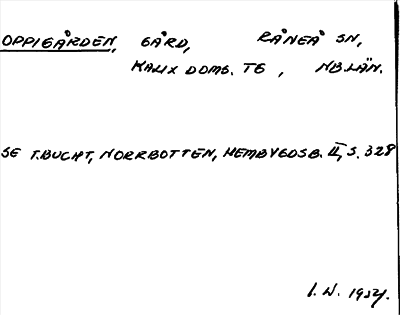 OPPIGÅRDEN, GÅRD, RÅNEÅ SN,
KALIX DOMS. TG, NB.LÄN.
SE T.BUCHT, NORRBOTTEN, HEMBYGDSB. II, S. 328
I. W. 1954.